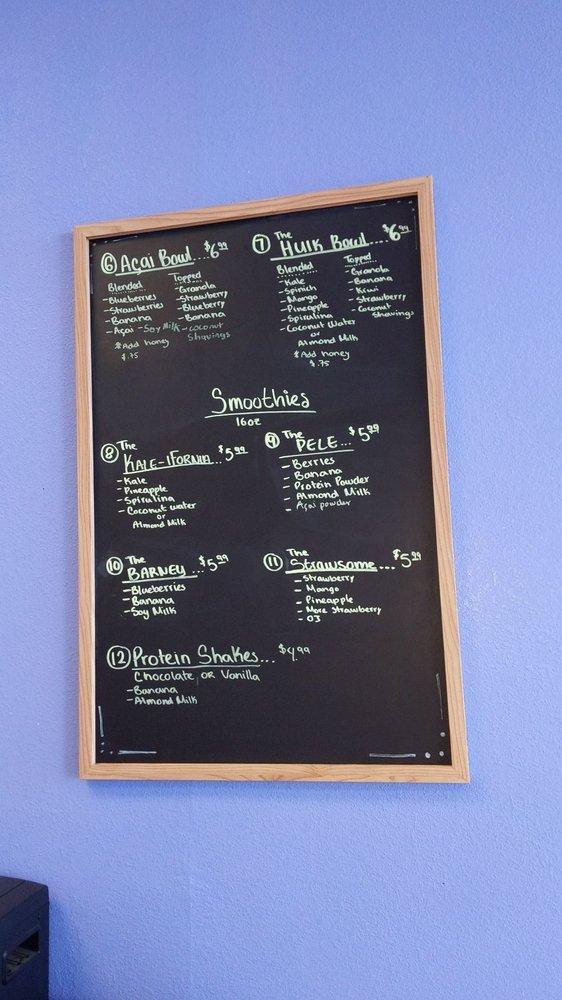 ⑥ Açai Bowl... $6.99
Blended
-Blueberries
-Strawberries
-Banana
-Açai -Soy Milk
*Add honey
$.75
Topped
-Granola
-Strawberry
-Blueberry
-Banana
-coconut
Shavings
⑦ The
Hulk Bowl.... $6.99
Blended
-Kale
-Spinich
-Mango
-Pineapple
-Spirulina
-Coconut Water
or
Almond Milk
*Add honey
$.75
Topped
-Granola
-Banana
-Kiwi
-Strawberry
-Coconut
Shavings
Smoothies
16oz
⑧ The
KALE-IFORNIA... $5.99
-Kale
-Pineapple
-Spirulina
-Coconut water
or
Almond Milk
⑨ The
PELE... $5.99
-Berries
-Banana
-Protein Powder
-Almond Milk
-Açai powder
-
⑩ The
BARNEY... $5.99
-Blueberries
-Banana
-Soy Milk
⑪ The
Strawsome... $5.99
-Strawberry
-Mango
-Pineapple
-More Strawberry
-OJ
⑫ Protein Shakes... $4.99
Chocolate, OR Vanilla
-Banana
-Almond Milk